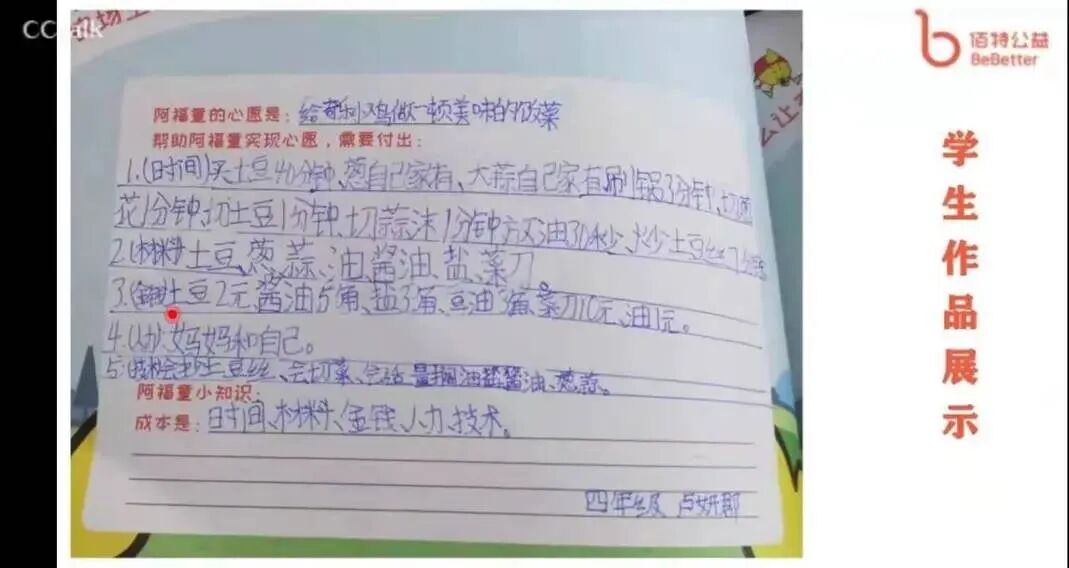 CCtalk
佰特公益
BeBetter
学生作品展示
阿福童的心愿是：给 做一顿美味的饭菜
帮助阿福童实现心愿，需要付出：
1.(时间)买土豆40分钟、葱自己家有、大蒜自己家有 锅3分钟、切葱
花1分钟、切土豆1分钟、切蒜沫1分钟、放油30秒、炒土豆丝7分钟
2.(材料)土豆、葱、蒜、油、酱油、盐、菜刀
3.(金钱)土豆2元、酱油5角、盐3角、豆油3角、菜刀10元、油1元。
4.(人力)妈妈和自己。
5.(技术)会 土豆丝、会切菜、会 油盐酱油、葱蒜。
阿福童小知识：
成本是：时间、材料、金钱、人力、技术。
四年级 卢妍